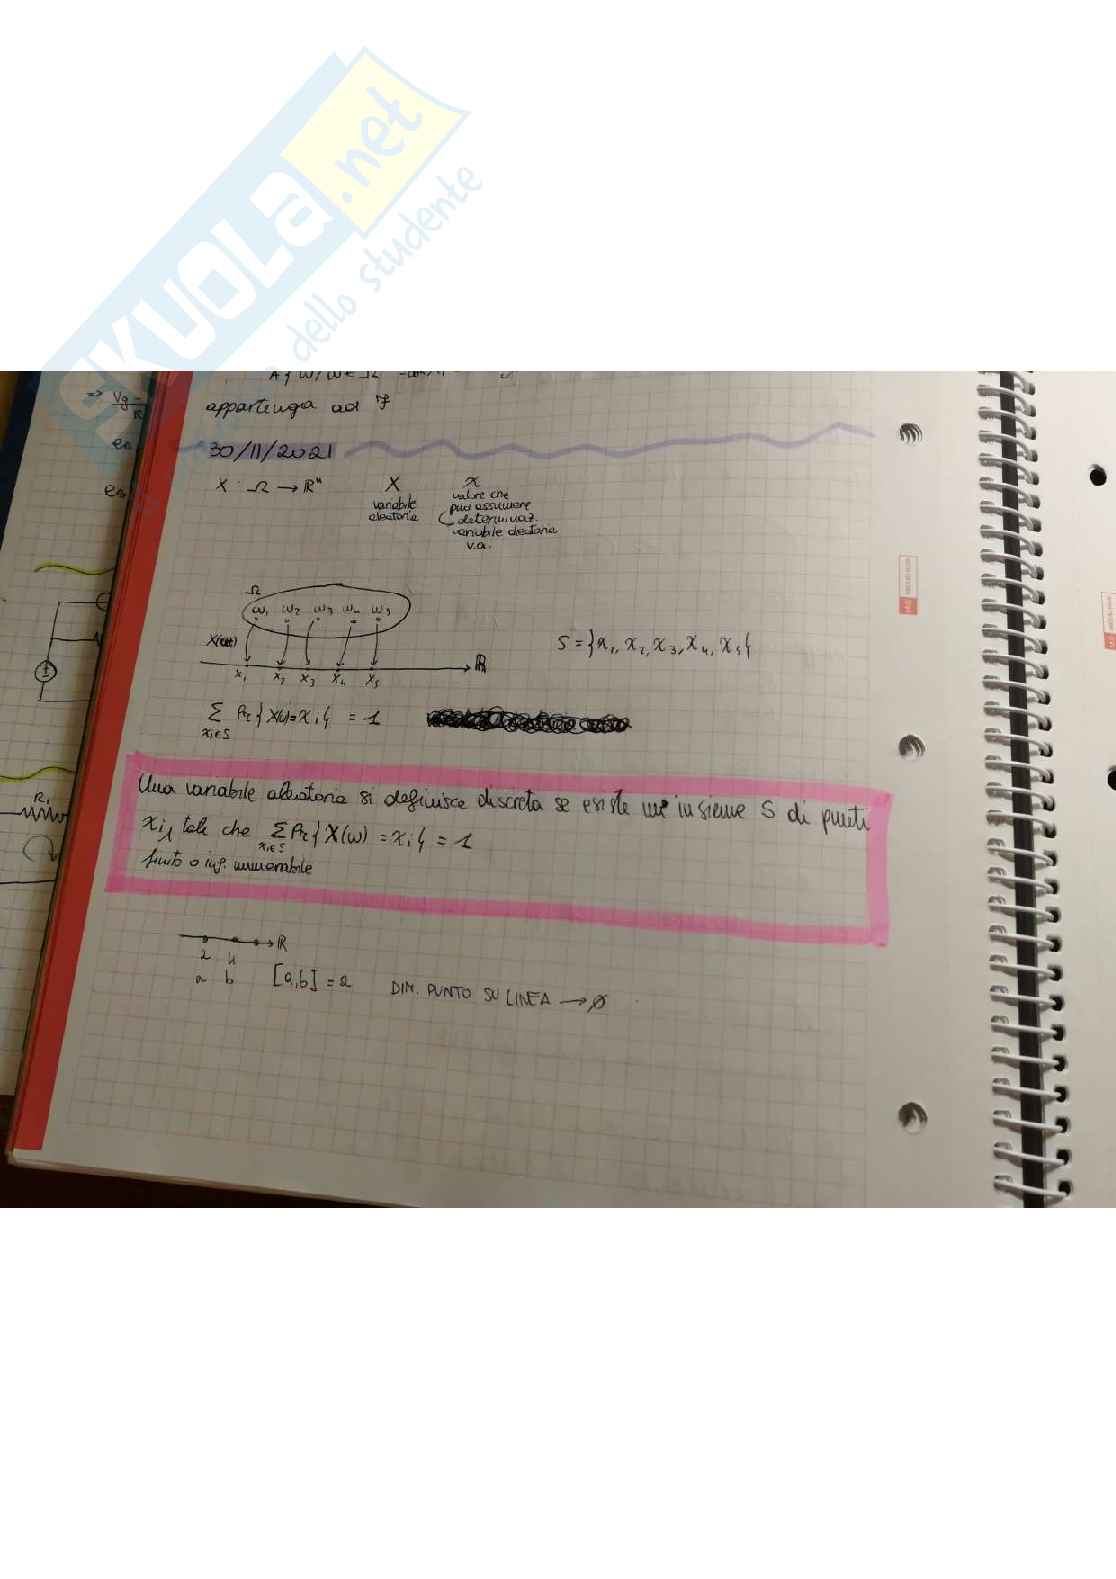 SKUOLA.net
dello studente
=> Vg -
R
appartenga ad F
30/11/2021
X : Ω → ℝⁿ
X
variabile
aleatoria
x
valore che
può assumere
determinaz.
variabile aleatoria
v.a.
Ω
ω₁ ω₂ ω₃ ω₄ ω₅
ℝ
x₁ x₂ x₃ x₄ x₅
S = {x₁, x₂, x₃, x₄, x₅}
∑ Pr{X(ω)=xᵢ} = 1
xᵢ∈S
Una variabile aleatoria si definisce discreta se esiste un insieme S di punti
xᵢ, tale che ∑ Pr{X(ω) = xᵢ} = 1
xᵢ∈S
finito o inf. numerabile
R₁
ℝ
2 4
a b
[a,b] = 2
DIM. PUNTO SU LINEA → ∅